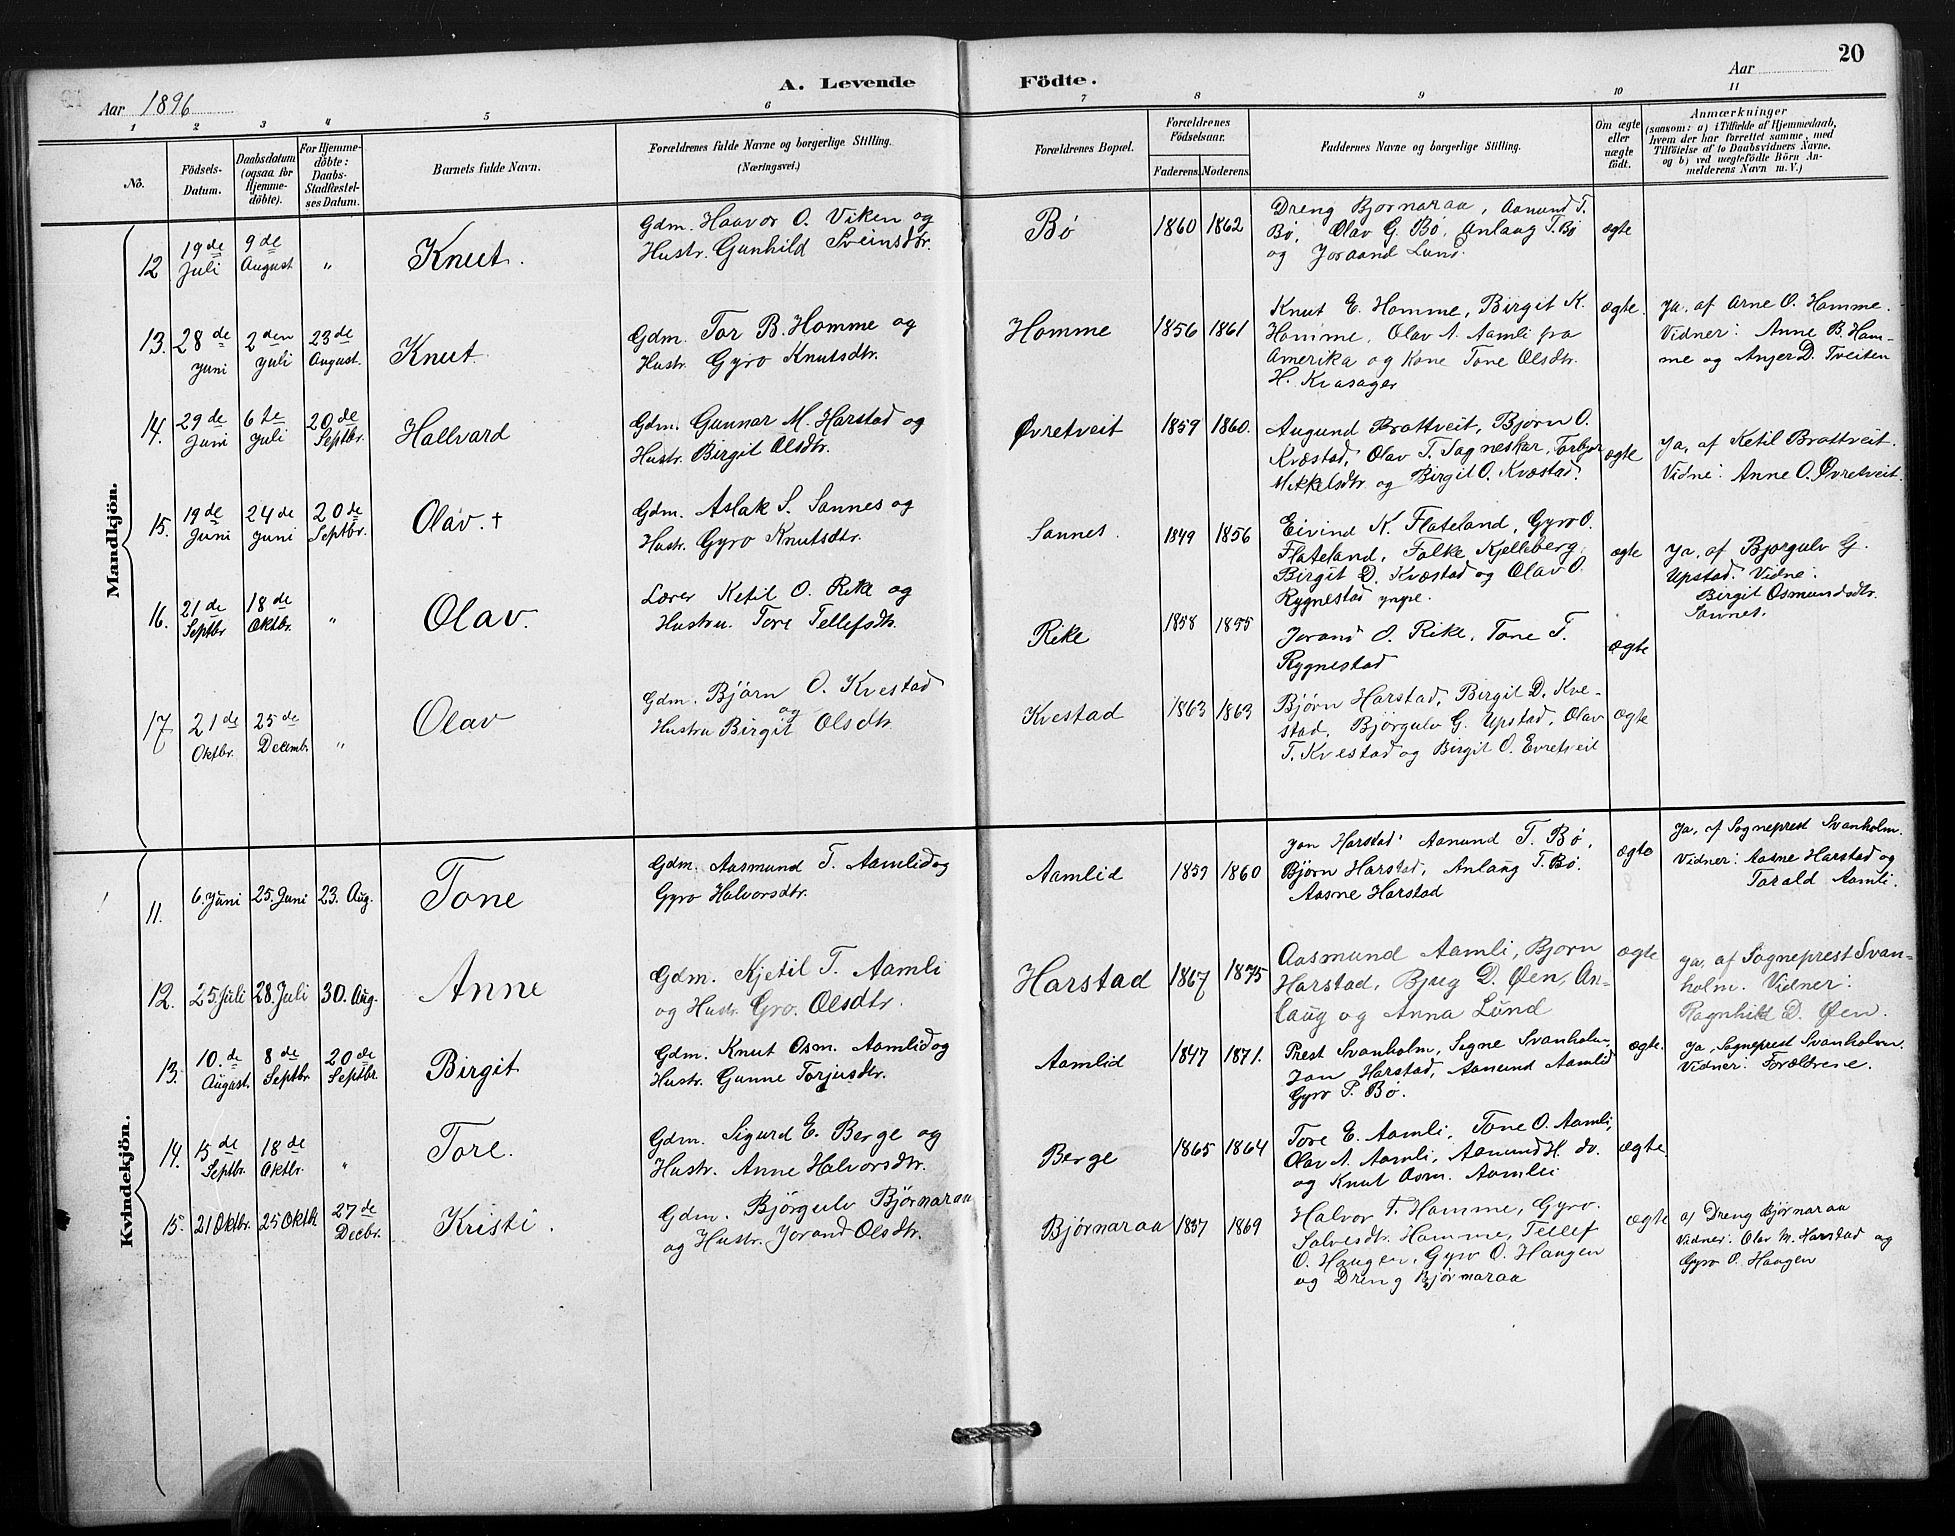 20
A. Levende Födte.
Aar 1896
Aar
1 2 3 4 5 6 7 8 9 10 11
No.
Födsels-
Datum.
Daabsdatum
(ogsaa for
Hjemme-
döbte).
For Hjemme-
döbte:
Daabs-
Stadfæstel-
ses Datum.
Barnets fulde Navn.
Forældrenes fulde Navne og borgerlige Stilling.
(Næringsvei.)
Forældrenes Bopæl.
Forældrenes
Födselsaar.
Faderens. Moderens.
Faddernes Navne og borgerlige Stilling.
Om ægte
eller
uægte
födt.
Anmærkninger
(saasom: a) i Tilfælde af Hjemmedaab,
hvem der har forrettet samme, med
Tilföielse af to Daabsvidners Navne,
og b) ved uægtefödte Börn An-
melderens Navn m. V.)
Mandkjön.
12 19de Juli 9de August „ Knut.
Gdm. Haavor O. Viken og
Hustr. Gunhild Sveinsdtr.
Bø 1860 1862
Dreng Bjørnaraa, Aanund T.
Bø, Olav G. Bø, Anlaug T. Bø
og Joraand Lund.
ægte
13. 28de Juni 2den Juli 23de August. Knut.
Gdm. Tor B. Homme og
Hustr. Gyro Knutsdtr.
Homme 1856 1861
Knut E. Homme, Birgit K.
Homme, Olav A. Aamli fra
Amerika og Kone Tone Olsdtr.
H. Kvasager
ægte.
Ja, af Arne O. Homme.
Vidner: Anne B. Hom-
me og Anjer D. Tveiten
14. 29de Juni 6te Juli 20de Septbr. Hallvard
Gdm. Gunnar M. Harstad og
Hustr. Birgit Olsdtr.
Øvretveit 1859 1860.
Augund Brottveit, Bjørn O.
Kvæstad, Olav T. Tagneskar, Torbjør
Mikkelsdtr og Birgit O. Kvæstad.
ægte
Ja, af Ketil Brottveit.
Vidne: Anne O. Øvretveit.
15. 19de Juni 24de Juni 20de Septbr. Olav. †
Gdm. Aslak S. Sannes og
Hustr. Gyro Knutsdtr.
Sannes. 1849 1856
Eivind K. Flateland, Gyro O.
Flateland, Folke Kjelleberg,
Birgit D. Kvæstad og Olav O.
Rygnestad yngre.
ægte
Ja, af Bjørgulv G.
Upstad. Vidne:
Birgit Osmundsdtr.
Sannes.
16. 21de Septbr 18de Oktbr. „ Olav.
Lærer Ketil O. Rike og
Hustru. Tore Tellefsdtr.
Rike 1858 1855
Jorand O. Rike, Tone T.
Rygnestad
ægte
17 21de Oktbr. 25de Decembr. „ Olav
Gdm. Bjørn O. Kvestad
og
Hustru Birgit Olsdtr.
Kvestad 1863 1863
Bjørn Harstad, Birgit D. Kve-
stad, Bjørgulv G. Upstad, Olav
T. Kvestad og Birgit O. Evretveit
ægte
Kvindekjön.
11. 6. Juni 25. Juni 23. Aug. Tone
Gdm. Aasmund T. Aamlid og
Gyro Halvorsdtr.
Aamlid 1859 1860
Jon Harstad Aanund T. Bø,
Bjørn Harstad, Anlaug T. Bø.
Aasne Harstad
ægte
Ja, af Sogneprest Svanholm.
Vidner: Aasne Harstad og
Torald Aamli.
12. 25. Juli 28. Juli 30. Aug. Anne
Gdm. Kjetil T. Aamli
og Hustr. Gro. Olsdtr.
Harstad 1867 1875
Aasmund Aamli, Bjorn
Harstad, Bjug D. Øen, An-
laug og Anna Lund
ægte
Ja, af Sogneprest Svan-
holm. Vidner:
Ragnhild D. Øen.
13. 10.de August. 8de Septbr 20de Septbr. Birgit
Gdm. Knut Osm. Aamlid og
Hustr. Gunne Torjusdtr.
Aamlid 1847 1871.
Prest Svanholm, Signe Svanholm,
Jon Harstad, Aanund Aamlid
Gyro T. Bø.
ægte.
Ja, Sogneprest Svanholm.
Vidner: Forældrene.
14. 15de Septbr. 18de Oktbr. „ Tore.
Gdm. Sigurd E. Berge og
Hustr. Anne Halvorsdtr.
Berge 1865 1864
Tore E. Aamli, Tone O. Aamli,
Olav A. Aamli, Aanund H. do.
og Knut Osm. Aamlii
ægte
15. 21 Oktbr. 25 Oktb 27de Decbr. Kristi.
Gdm. Bjørgulv Bjørnaraa
og Hustr. Jorand Olsdtr.
Bjørnaraa 1837 1869
Halvor T. Homme, Gyro.
Salvesdtr. Homme, Tellef
O. Haugen, Gyro O. Haugen
og Dreng Bjørnaraa
ægte
af Dreng Bjørnaraa
Vidner: Olav M. Harstad og
Gyro O. Haugen